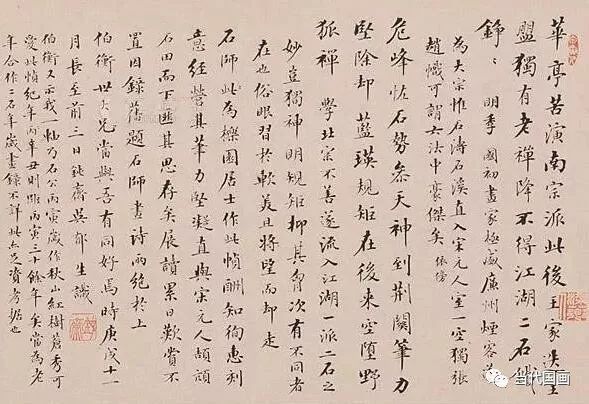 華亭苦演南宗派此後王家迭主
盟獨有老禪降不得江湖二石
錚〻 明季 國初畫家極盛廣州煙客
為大宗惟石濤石溪直入宋元人室一空獨張
趙幟可謂六法中豪傑矣 依傍
危峰怪石勢參天神到荆關筆力
堅除却藍瑛規矩在後来空墮野
狐禪 學北宗不善遂流入江湖一派二石之
妙豈獨神明規矩抑其胷次有不同者
在也俗眼習於軟美且將望而却走
石師此為櫟園居士作此幀酬知徇惠刻
意經營其筆力堅凝直與宋元人頡頏
石田而下匪其思存矣展讀累日歎賞不
置因錄舊題石師畫詩兩絕於上
伯衡世大兄當與吾有同好焉時庚戌十一
月長至前三日鈍齋吳郁生識
伯衡又示我一軸乃石公丙寅歲作秋山紅樹蒼秀可
愛此幀紀年丙辛丑則距丙寅三十餘年矣當為老
年合作二石年歲畫錄不詳此亦足資考據也
当代国画